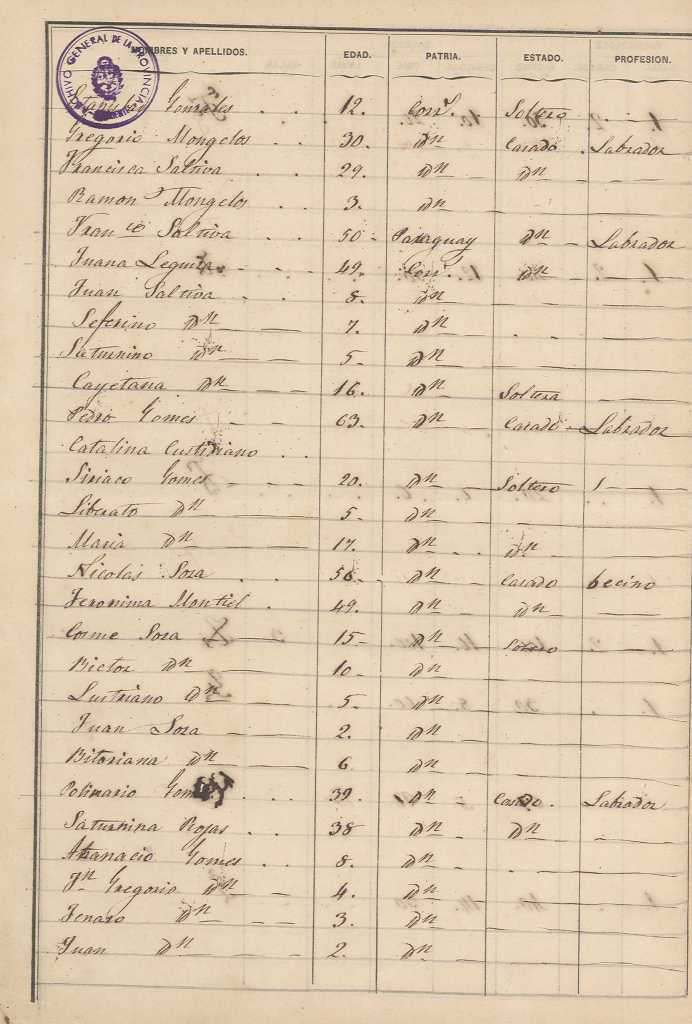 ARCHIVO GENERAL DE LA PROVINCIA
NOMBRES Y APELLIDOS. EDAD. PATRIA. ESTADO. PROFESIÓN.
Gonzales 12. Corr.s Soltero
Gregorio Mongelos 30. Dn Casado Labrador
Francisca Saltiva 29. Dn Dn
Ramon Mongelos 3. Dn
Franco Saltiva 50 Paraguay Dn Labrador
Juana 49. Corr.s Dn
Juan Saltiva 8. Dn
Seferino Dn 7. Dn
Saturnino Dn 5 Dn
Cayetana Dn 16. Dn Soltera
Pedro Gomes 63. Dn Casado Labrador
Catalina
Siriaco Gomes 20. Dn Soltero
Liberato Dn 5. Dn
Maria Dn 17. Dn Dn
Nicolas Sosa 56 Dn Casado becino
Jeronima Montiel 49. Dn Dn
Cosme Sosa 15 Dn Sotero
Bictor Dn 10 Dn
Lustriano Dn 5 Dn
Juan Sosa 2. Dn
Bitoriana Dn 6 Dn
Polinario 39. Dn Casado Labrador
Saturnina Rojas 38 Dn Dn
Atanacio Gomes 8. Dn
Jn Gregorio Dn 4. Dn
Jenaro Dn 3. Dn
Juan Dn 2. Dn